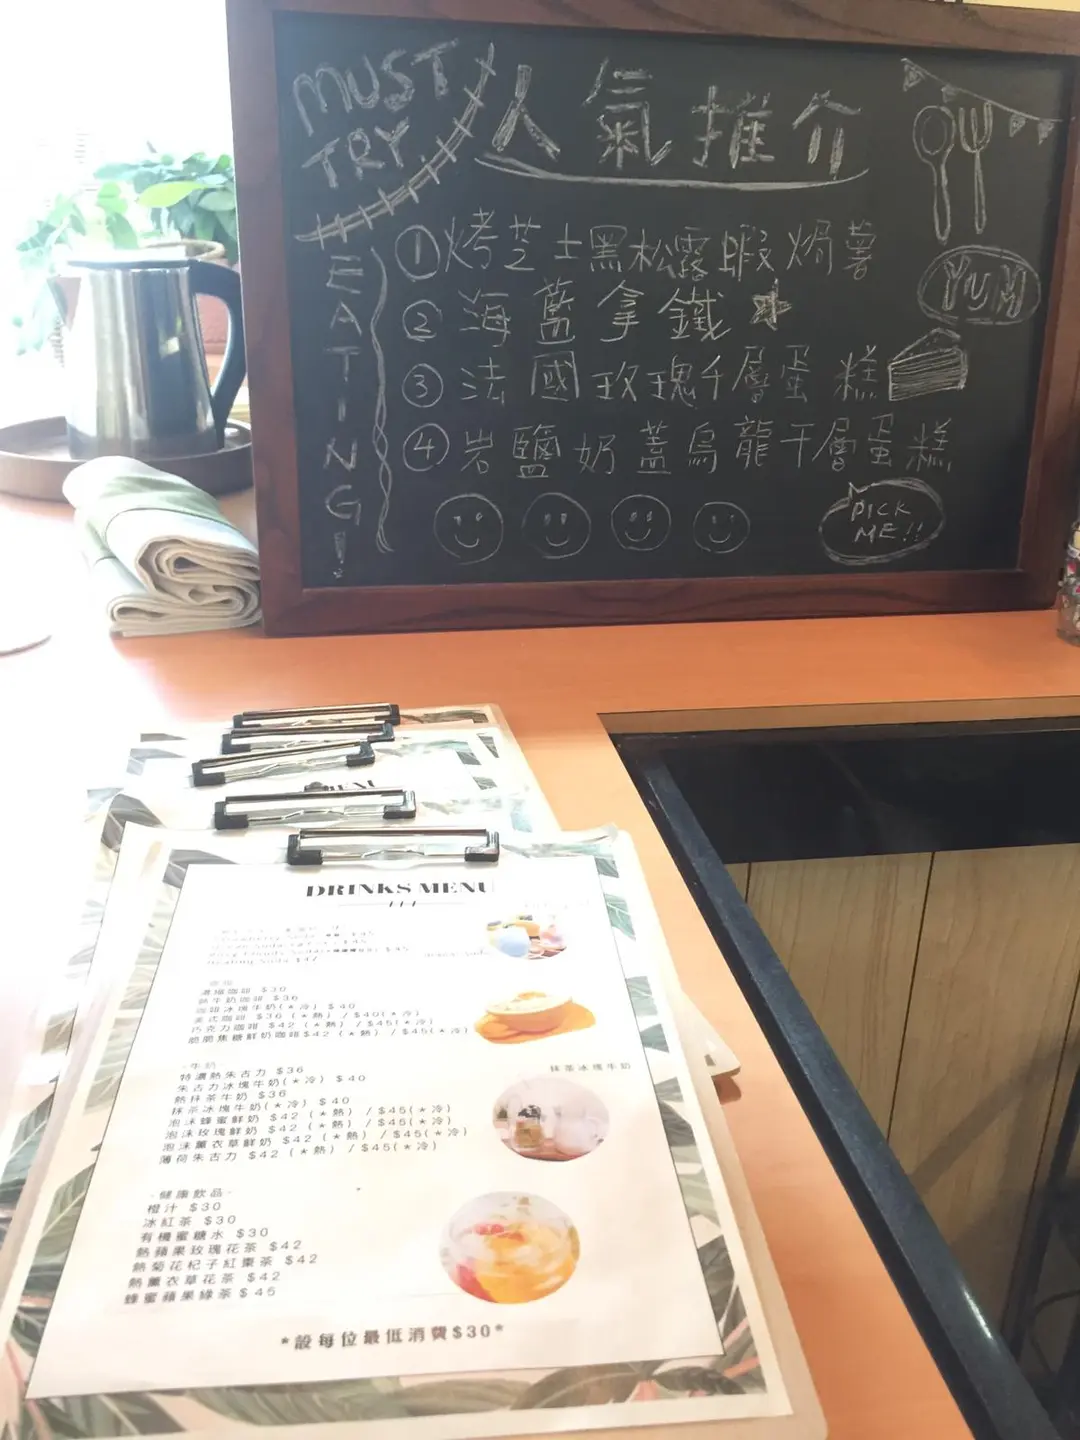 MUST TRY
EATING!
人氣推介
① 烤芝士黑松露蝦焗薯
② 海藍拿鐵
③ 法國玫瑰千層蛋糕
④ 岩鹽奶蓋烏龍千層蛋糕
YUM
PICK ME!!
DRINKS MENU
咖啡
濃縮咖啡 $30
熱牛奶咖啡 $36
咖啡冰塊牛奶(*冷) $40
美式咖啡 $36 (*熱) /$40(*冷)
巧克力咖啡 $42 (*熱) /$45(*冷)
脆脆焦糖鮮奶咖啡$42 (*熱) /$45(*冷)
-牛奶-
特濃熱朱古力 $36
朱古力冰塊牛奶(*冷) $40
熱抹茶牛奶 $36
抹茶冰塊牛奶(*冷) $40
泡沫蜂蜜鮮奶 $42 (*熱) /$45(*冷)
泡沫玫瑰鮮奶 $42 (*熱) /$45(*冷)
泡沫薰衣草鮮奶 $42 (*熱) /$45(*冷)
薄荷朱古力 $42 (*熱) /$45(*冷)
抹茶冰塊牛奶
-健康飲品-
橙汁 $30
冰紅茶 $30
有機蜜糖水 $30
熱蘋果玫瑰花茶 $42
熱菊花杞子紅棗茶 $42
熱薰衣草花茶 $42
蜂蜜蘋果綠茶 $45
*設每位最低消費$30*